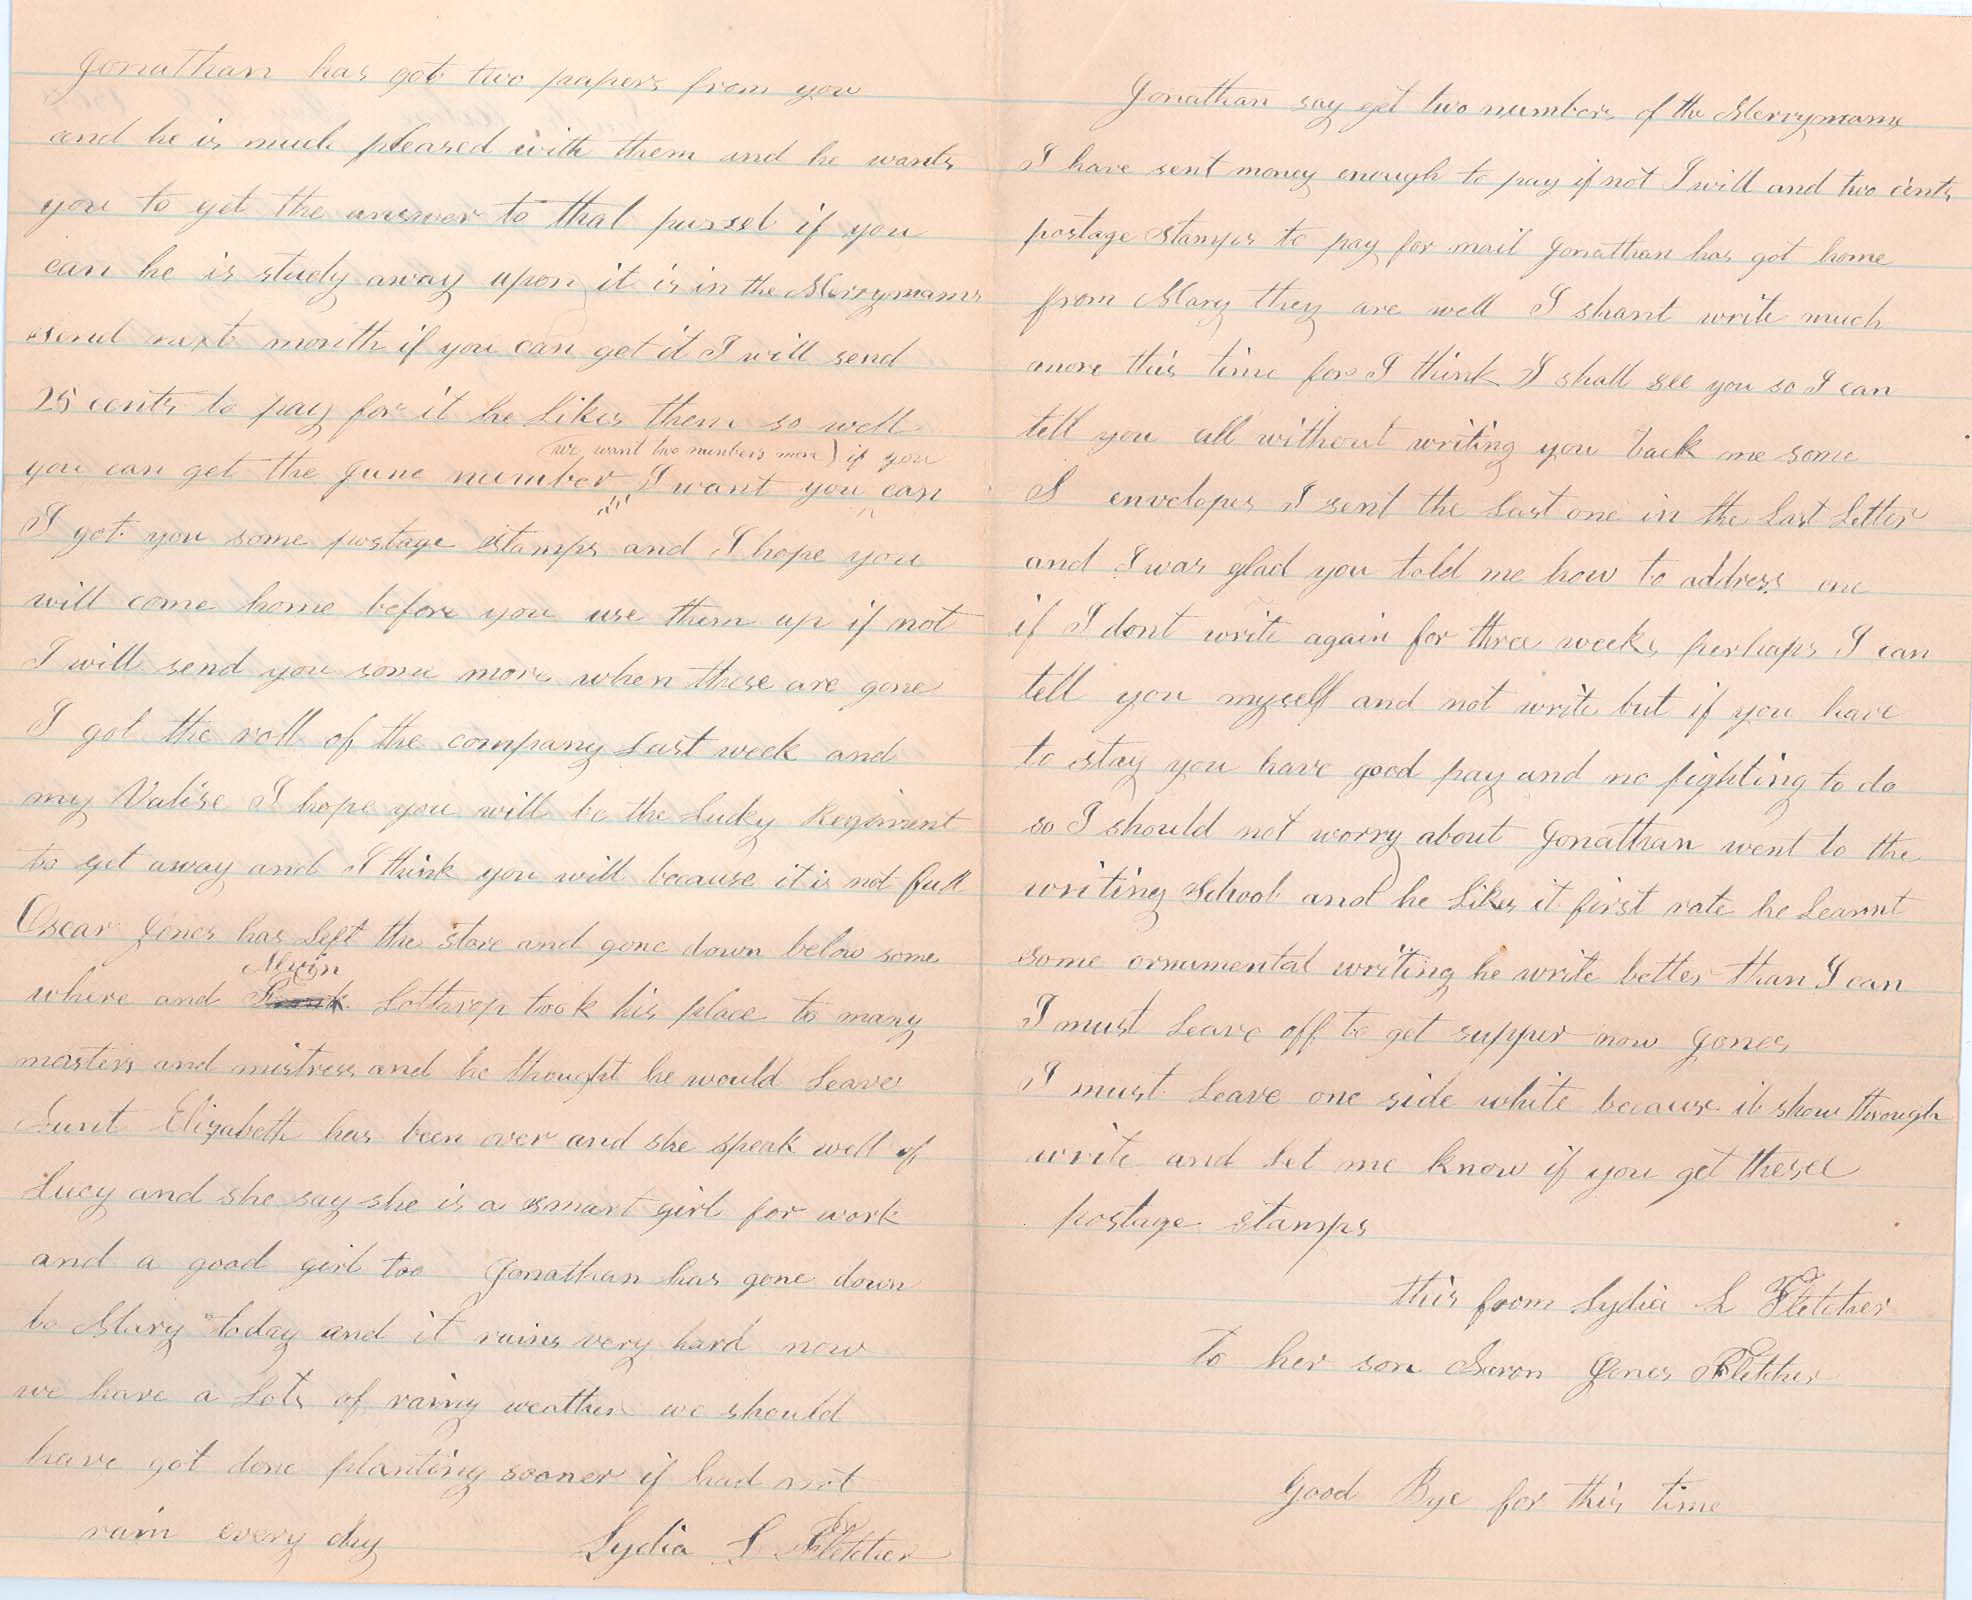 Jonathan has got two papers from you
and he is much pleased with them and he wants
you to get the answer to that pussel if you
can he is study away upon it is in the Merrymans
send next month if you can get it I will send
25 cents to pay for it he likes them so well
(we want two numbers more) if you
you can get the June number I want you can
I got you some postage stamps and I hope you
will come home before you use them up if not
I will send you some more when these are gone
I got the roll of the company last week and
my Valise I hope you will be the lucky Regiment
to get away and I think you will because it is not full
Oscar Jones has left the store and gone down below some
Alvin
where and Lothrop took his place to many
masters and mistress and he thought he would leave
Aunt Elizabeth has been over and she speak well of
Lucy and she say she is a smart girl for work
and a good girl too Jonathan has gone down
to Mary today and it rains very hard now
we have a lots of rainy weather we should
have got done planting sooner if had not
rain every day Lydia L Fletcher
Jonathan say get two numbers of the Merrymans
I have sent money enough to pay if not I will and two cents
postage stamps to pay for mail Jonathan has got home
from Mary they are well I shant write much
more this time for I think I shall see you so I can
tell you all without writing you back me some
envelopes I sent the last one in the last letter
and I was glad you told me how to address one
if I dont write again for three weeks perhaps I can
tell you myself and not write but if you have
to stay you have good pay and no fighting to do
so I should not worry about Jonathan went to the
writing School and he likes it first rate he learnt
some ornamental writing he write better than I can
I must leave off to get supper now Jones
I must leave one side white because it show through
write and let me know if you get these
postage stamps
this from Lydia L Fletcher
to her son Aaron Jones Fletcher
Good Bye for this time